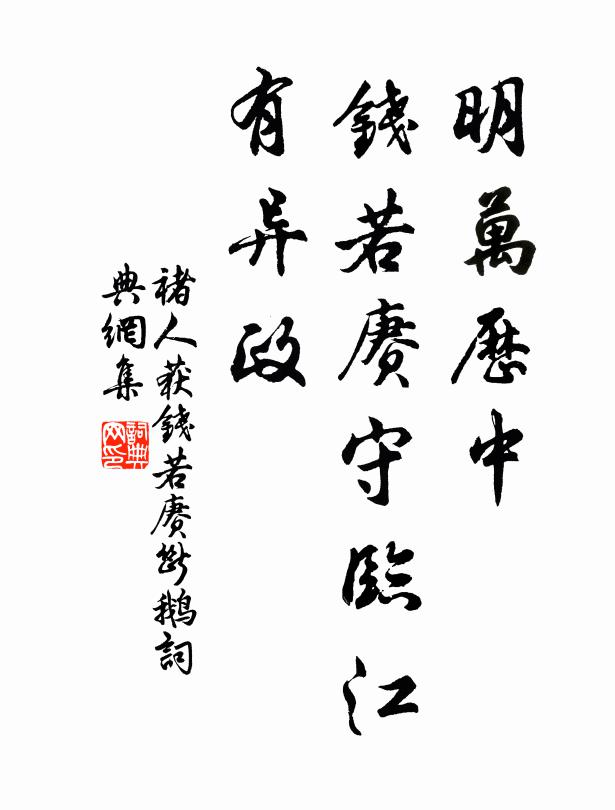 明萬歷中
錢若赓守臨江
有异政
褚人获錢若赓斷鵝詞
典網集
詞典网印